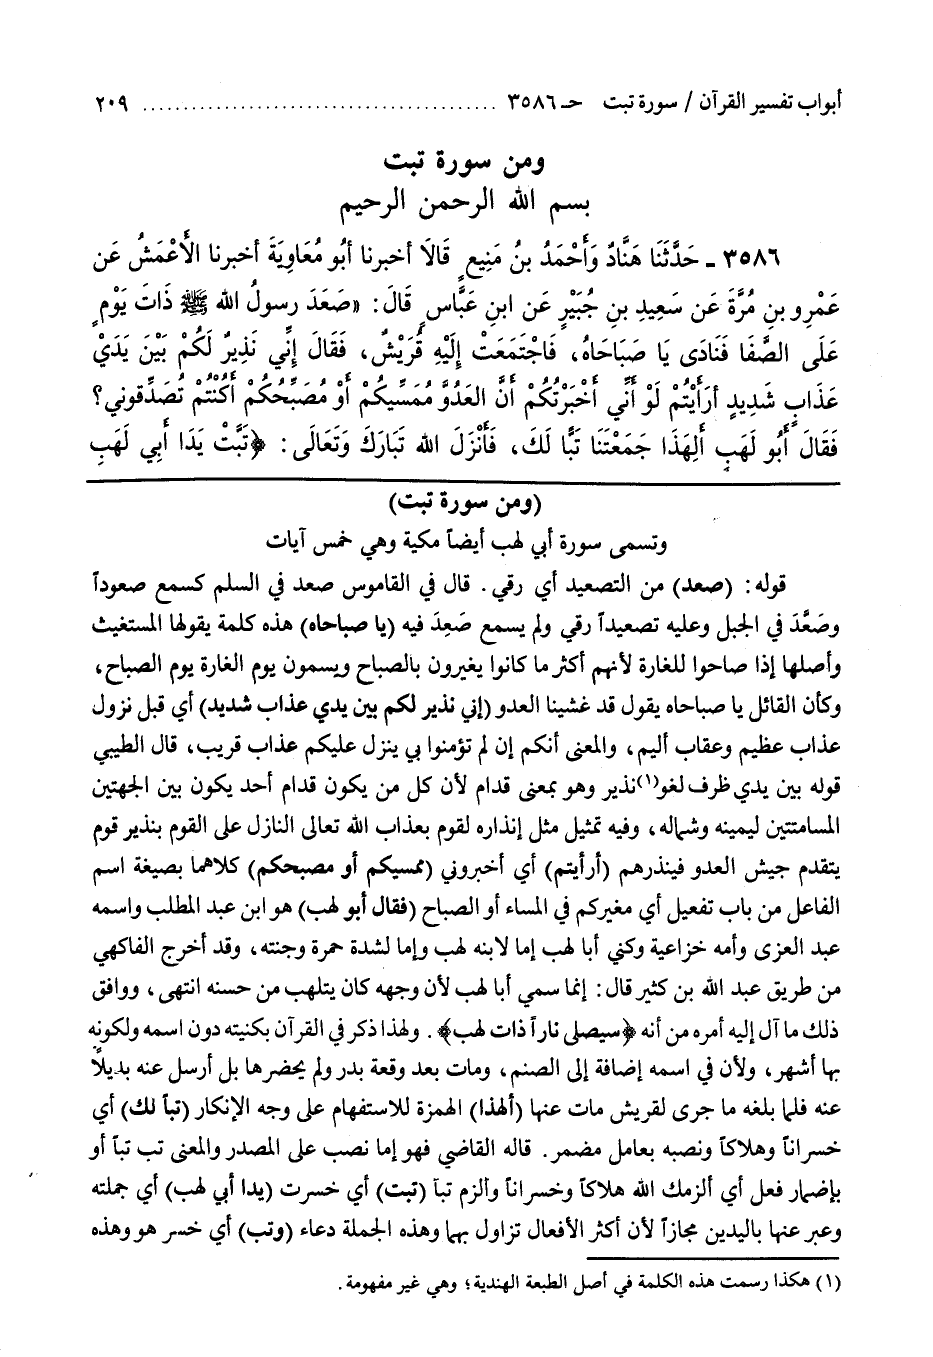 أبواب تفسير القرآن / سورة تبت حـ ٣٥٨٦ ........................................ ٢٠٩
ومن سورة تبت
بسم الله الرحمن الرحيم
٣٥٨٦ ـ حَدَّثَنَا هَنَّادٌ وَأَحْمَدُ بنُ مَنِيعٍ قَالَا أخبرنا أبُو مُعَاوِيَةَ أخبرنا الأَعْمَشُ عَن
عَمْرِو بنِ مُرَّةَ عَن سَعِيدِ بنِ جُبَيْرٍ عَن ابنِ عَبَّاسٍ قَالَ: «صَعَدَ رسولُ الله ﷺ ذَاتَ يَوْمٍ
عَلَى الصَّفَا فَنَادَى يَا صَبَاحَاهُ، فَاجْتَمَعَتْ إِلَيْهِ قُرَيْشٌ، فَقَالَ إِنِّي نَذِيرٌ لَكُمْ بَيْنَ يَدَيْ
عَذَابٍ شَدِيدٍ أرَأَيْتُمْ لَوْ أَنِّي أَخْبَرْتُكُمْ أَنَّ العَدُوَّ مُمَسِّيكُمْ أَوْ مُصَبِّحُكُمْ أَكُنْتُمْ تُصَدِّقوني؟
فَقَالَ أَبُو لَهَبٍ أَلِهَذَا جَمَعْتَنَا تَبًّا لَكَ، فَأَنْزَلَ الله تَبَارَكَ وَتَعَالَى: ﴿تَبَّتْ يَدَا أَبِي لَهَبٍ
(ومن سورة تبت)
وتسمى سورة أبي لهب أيضاً مكية وهي خمس آيات
قوله: (صعد) من التصعيد أي رقي. قال في القاموس صعد في السلم كسمع صعوداً
وصَعَّدَ في الجبل وعليه تصعيداً رقي ولم يسمع صَعِدَ فيه (يا صباحاه) هذه كلمة يقولها المستغيث
وأصلها إذا صاحوا للغارة لأنهم أكثر ما كانوا يغيرون بالصباح ويسمون يوم الغارة يوم الصباح،
وكأن القائل يا صباحاه يقول قد غشينا العدو (إني نذير لكم بين يدي عذاب شديد) أي قبل نزول
عذاب عظيم وعقاب أليم، والمعنى أنكم إن لم تؤمنوا بي ينزل عليكم عذاب قريب، قال الطيبي
قوله بين يدي ظرف لغو(١)نذير وهو بمعنى قدام لأن كل من يكون قدام أحد يكون بين الجهتين
المسامتتين ليمينه وشماله، وفيه تمثيل مثل إنذاره لقوم بعذاب الله تعالى النازل على القوم بنذير قوم
يتقدم جيش العدو فينذرهم (أرأيتم) أي أخبروني (ممسيكم أو مصبحكم) كلاهما بصيغة اسم
الفاعل من باب تفعيل أي مغيركم في المساء أو الصباح (فقال أبو لهب) هو ابن عبد المطلب واسمه
عبد العزى وأمه خزاعية وكني أبا لهب إما لابنه لهب وإما لشدة حمرة وجنته، وقد أخرج الفاكهي
من طريق عبد الله بن كثير قال: إنما سمي أبا لهب لأن وجهه كان يتلهب من حسنه انتهى، ووافق
ذلك ما آل إليه أمره من أنه ﴿سيصلى ناراً ذات لهب﴾. ولهذا ذكر في القرآن بكنيته دون اسمه ولكونه
بها أشهر، ولأن في اسمه إضافة إلى الصنم، ومات بعد وقعة بدر ولم يحضرها بل أرسل عنه بديلاً
عنه فلما بلغه ما جرى لقريش مات عنها (ألهذا) الهمزة للاستفهام على وجه الإنكار (تباً لك) أي
خسراناً وهلاكاً ونصبه بعامل مضمر. قاله القاضي فهو إما نصب على المصدر والمعنى تب تباً أو
بإضمار فعل أي ألزمك الله هلاكاً وخسراناً وألزم تباً (تبت) أي خسرت (يدا أبي لهب) أي جملته
وعبر عنها باليدين مجازاً لأن أكثر الأفعال تزاول بها وهذه الجملة دعاء (وتب) أي خسر هو وهذه
(١) هكذا رسمت هذه الكلمة في أصل الطبعة الهندية؛ وهي غير مفهومة.